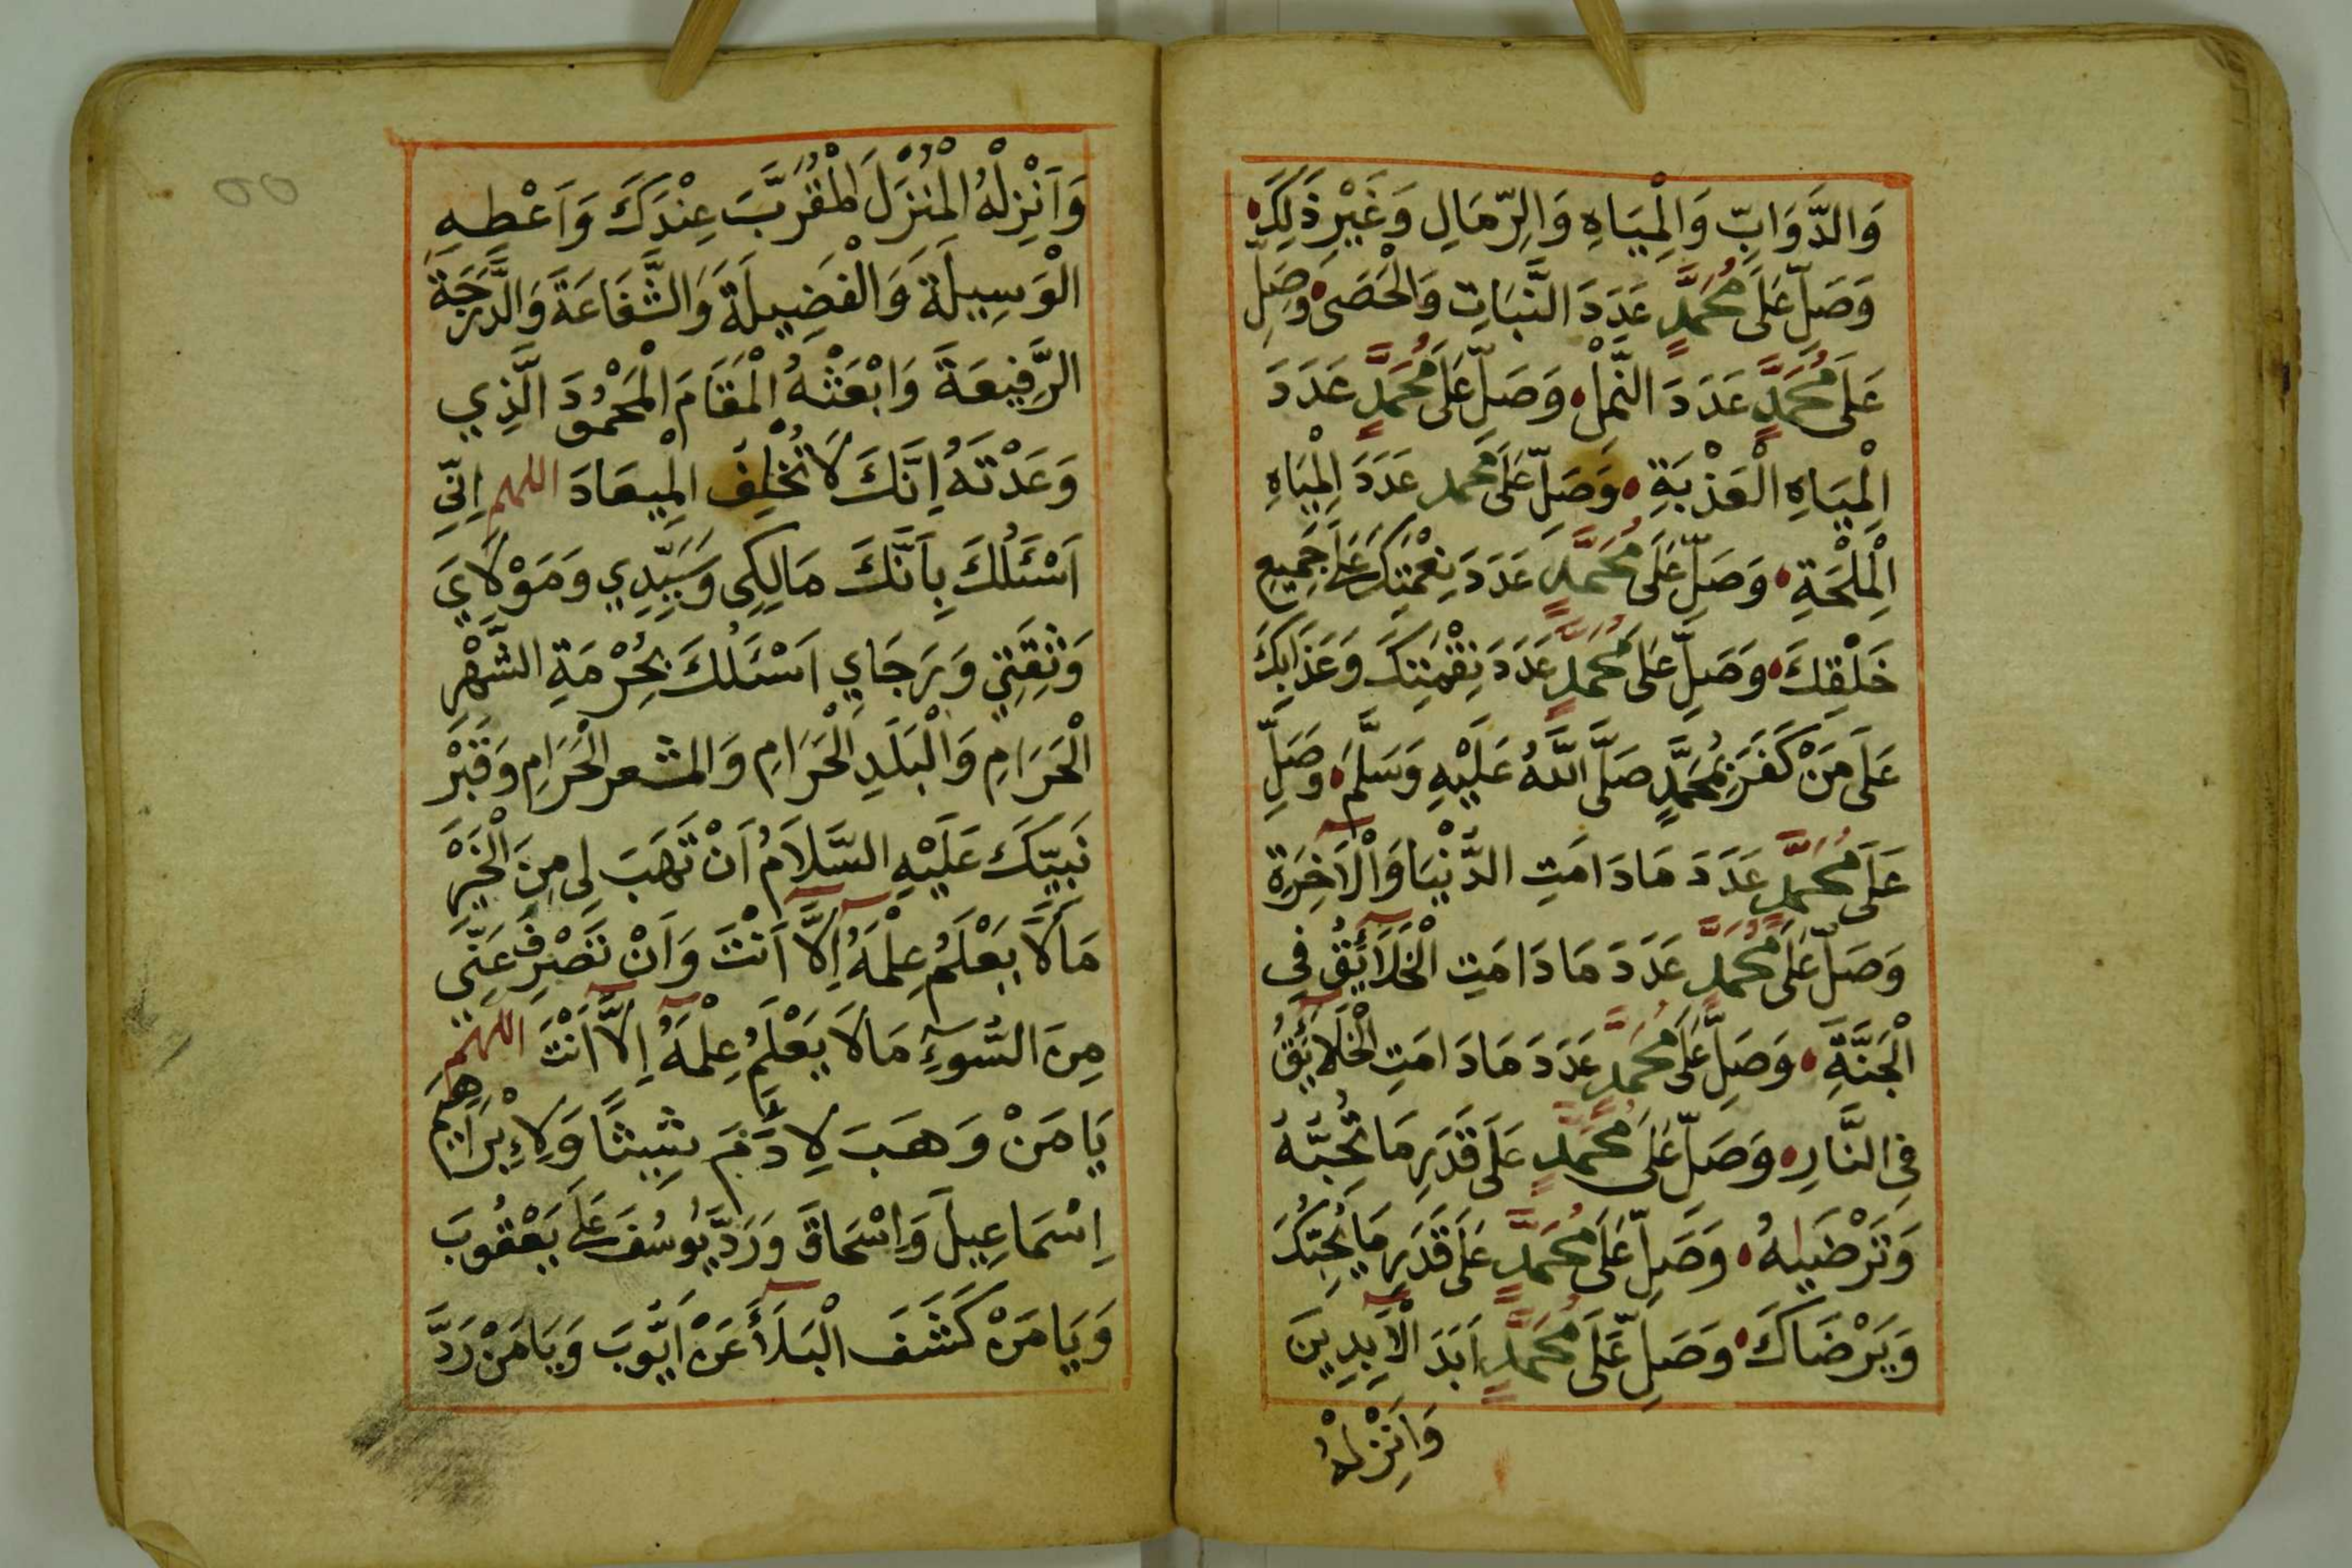 وَالدَّوَابِّ وَالْمِيَاهِ وَالرِّمَالِ وَغَيْرِ ذَلِكَ
وَصَلِّ عَلَى مُحَمَّدٍ عَدَدَ النَّبَاتِ وَالْحَصَى وَصَلِّ
عَلَى مُحَمَّدٍ عَدَدَ النَّمْلِ وَصَلِّ عَلَى مُحَمَّدٍ عَدَدَ
الْمِيَاهِ الْعَذْبَةِ وَصَلِّ عَلَى مُحَمَّد عَدَدَ الْمِيَاهِ
الْمِلْحَةِ وَصَلِّ عَلَى مُحَمَّدٍ عَدَدَ نِعْمَتِكَ عَلَى جَمِيعِ
خَلْقِكَ وَصَلِّ عَلَى مُحَمَّدٍ عَدَدَ نِقْمَتِكَ وَعَذَابِكَ
عَلَى مَنْ كَفَرَ بِمُحَمَّدٍ صَلَّى اللَّهُ عَلَيْهِ وَسَلَّمَ وَصَلِّ
عَلَى مُحَمَّدٍ عَدَدَ مَا دَامَتِ الدُّنْيَا وَالْآخِرَةِ
وَصَلِّ عَلَى مُحَمَّدٍ عَدَدَ مَا دَامَتِ الْخَلَآئِقُ فِي
الْجَنَّةِ وَصَلِّ عَلَى مُحَمَّدٍ عَدَدَ مَا دَامَتِ الْخَلَآئِقُ
فِي النَّارِ وَصَلِّ عَلَى مُحَمَّدٍ عَلَى قَدَرِ مَا تُحِبُّهُ
وَتَرْضَيٰهُ وَصَلِّ عَلَى مُحَمَّدٍ عَلَى قَدَرِ مَا يُحِبُّكَ
وَيَرْضَاكَ وَصَلِّ عَلَى مُحَمَّدٍ اَبَدَ الْآبِدِينَ
وَاَنْزِلْهُ
وَاَنْزِلْهُ الْمُنْزَلَ الْمُقَرَّبَ عِنْدَكَ وَاَعْطِهِ
الْوَسِيلَةَ وَالْفَضِيلَةَ وَالشَّفَاعَةَ وَالدَّرَجَةَ
الرَّفِيعَةَ وَابْعَثْهُ الْمَقَامَ الْمَحْمُودَ الَّذِي
وَعَدْتَهُ اِنَّكَ لَا تُخْلِفُ الْمِيعَادَ اللهم اِنِّي
اَسْئَلُكَ بِاَنَّكَ مَالِكِى وَسَيِّدِي وَمَوْلَايَ
وَثِقَتِي وَرَجَاي اَسْئَلُكَ بِحُرْمَةِ الشَّهْرِ
الْحَرَامِ وَالْبَلَدِ الْحَرَامِ وَالمشعر الْحَرَامِ وَقَبْرِ
نَبِيِّكَ عَلَيْهِ السَّلَامُ اَنْ تَهَبَ لِى مِنَ الْخَيْرِ
مَا لَا يَعْلَمُ عِلْمَهُ اِلَّا اَنْتَ وَاَنْ تَصْرِفَ عَنِّي
مِنَ السُّوءِ مَا لَا يَعْلَمُ عِلْمَهُ اِلَّا اَنْتَ اللهم
يَا مَنْ وَهَبَ لِادَمَ شِيثًا وَلِاِبْرَاهِيمَ
اِسْمَاعِيلَ وَاِسْحَاقَ وَرَدَّ يُوسُفَ عَلَى يَعْقُوبَ
وَيَا مَنْ كَشَفَ الْبَلَآءَ عَنْ اَيُّوبَ وَيَا مَنْ رَدَّ